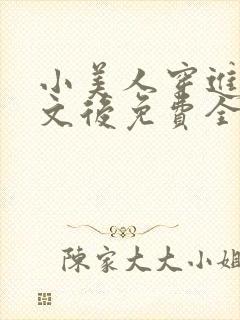 小美人穿進
文後免費全
陳家大大小姐